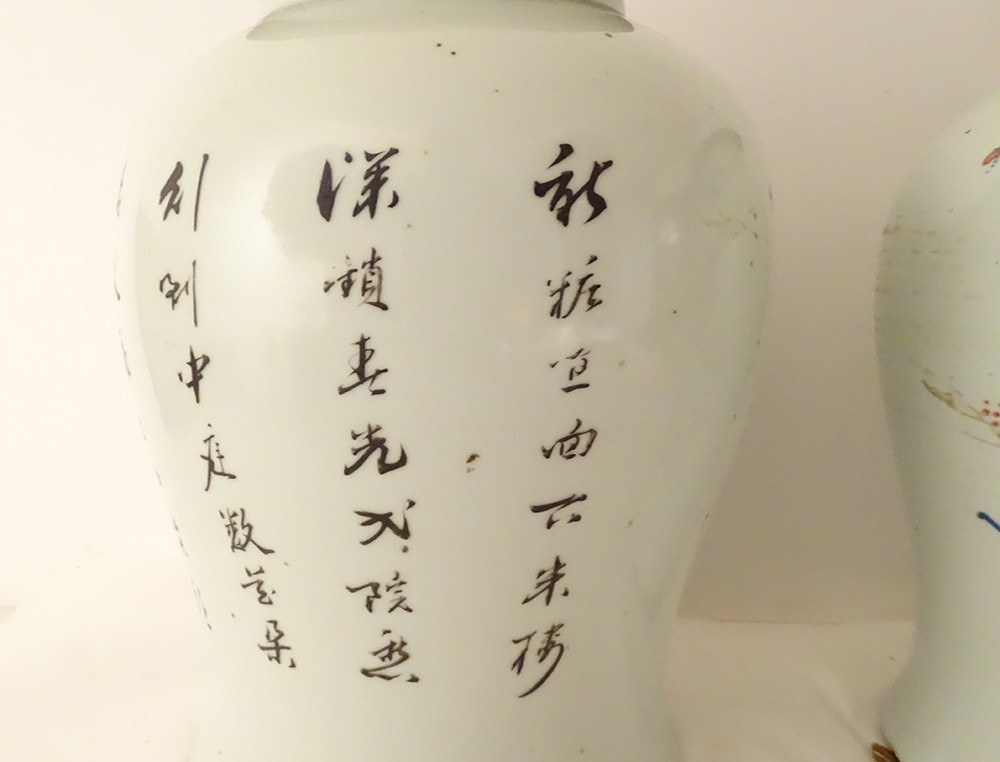 新粧宜面下朱楼
深鎖春光一院愁
行到中庭数花朵